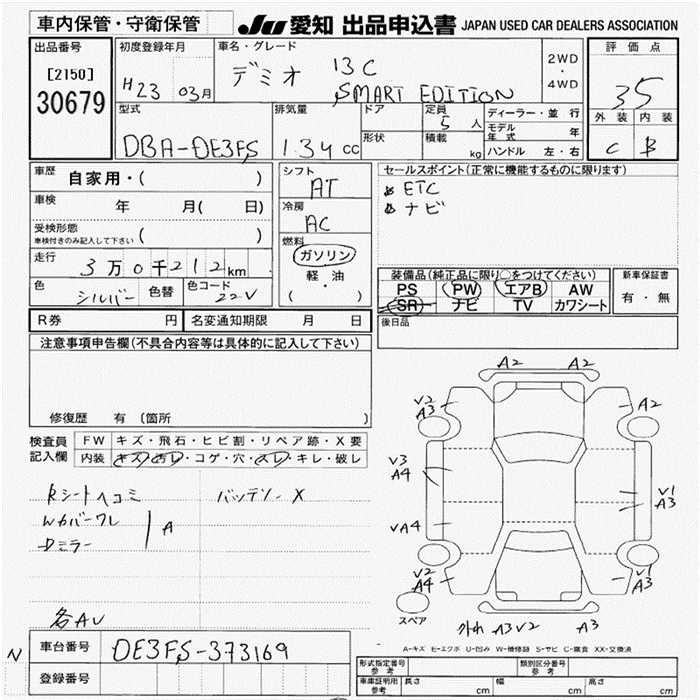 車内保管・守衛保管
JU 愛知 出品申込書 JAPAN USED CAR DEALERS ASSOCIATION
出品番号
[2150]
30679
初度登録年月
H23 03月
車名・グレード
デミオ 13C
SMART EDITION
2WD
・
4WD
評価点
35
外装 内装
C B
型式
DBA-DE3FS
排気量
1.34 cc
ドア
形状
定員
5 人
積載
kg
ディーラー・並行
モデル年式 年
ハンドル 左・右
車歴 自家用・( )
車検 年 月( 日)
受検形態
車検付きのみ記入して下さい ( )
走行 3万0千212km
色 シルバー 色替 色コード 22V
シフト
AT
冷房
AC
燃料
ガソリン
軽・油
( )
セールスポイント(正常に機能するものに限ります)
ETC
ナビ
装備品(純正品に限り○をつけてください)
PS PW エアB AW
SR ナビ TV カワシート
新車保証書
有・無
後日品
R券 円 名変通知期限 月 日
注意事項申告欄(不具合内容等は具体的に記入して下さい)
修復歴 有 (箇所 )
検査員
記入欄
FW キズ・飛石・ヒビ割・リペア跡・X要
内装 キズ・汚レ・コゲ・穴・スレ・キレ・破レ
Rシートヘコミ バッテリーX
Wカバーワレ
Dミラー
A
各AU
A2
V2
A3
A2
V3
A4
V1
A3
VA4
V2
A4
V1
A3
スペア
外れ A3V2 A3
A-キズ E-エクボ U-凹み W-補修跡 S-サビ C-腐食 XX-交換済
N
車台番号 DE3FS-373169
登録番号
形式指定番号
参考
類別区分番号
参考
車庫証明用
参考
長さ cm 幅 cm 高さ cm